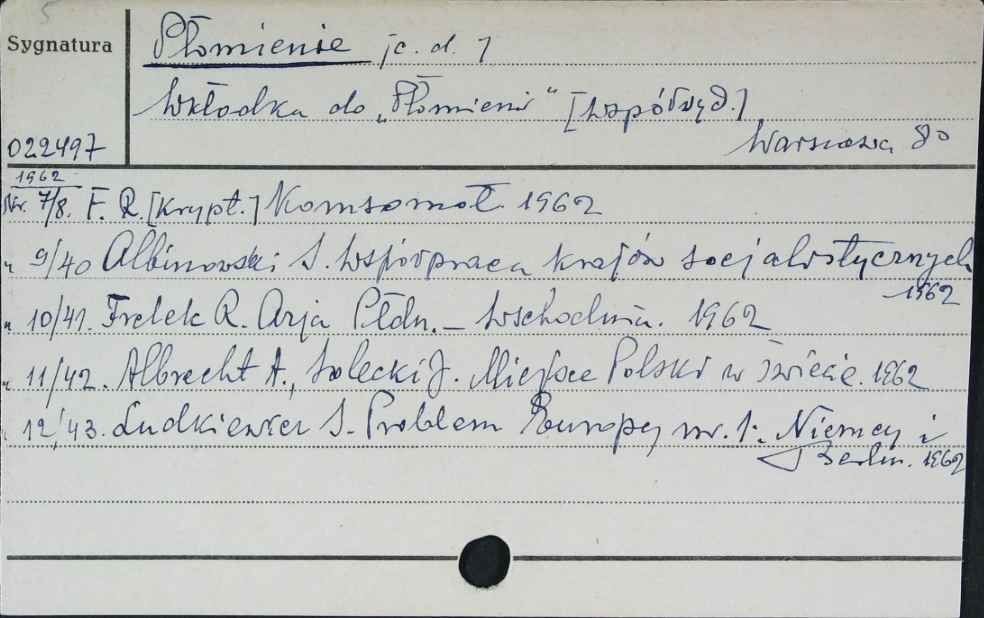 5
Sygnatura
Płomienie /c. d. /
Wkładka do „Płomieni" [współwyd.]
Warszawa 8°
022497
1962
Nr. 7/8. F. R. [krypt.] Komsomoł 1962
" 9/40 Albinowski S. Współpraca krajów socjalistycznych
1962
" 10/41. Frelek R. Azja Płdn. – Wschodnia. 1962
" 11/42. Albrecht A., Solecki J. Miejsce Polski w świecie. 1962
12/43. Ludkiewicz S. Problem Europy nr. 1. Niemcy i
Berlin. 1962